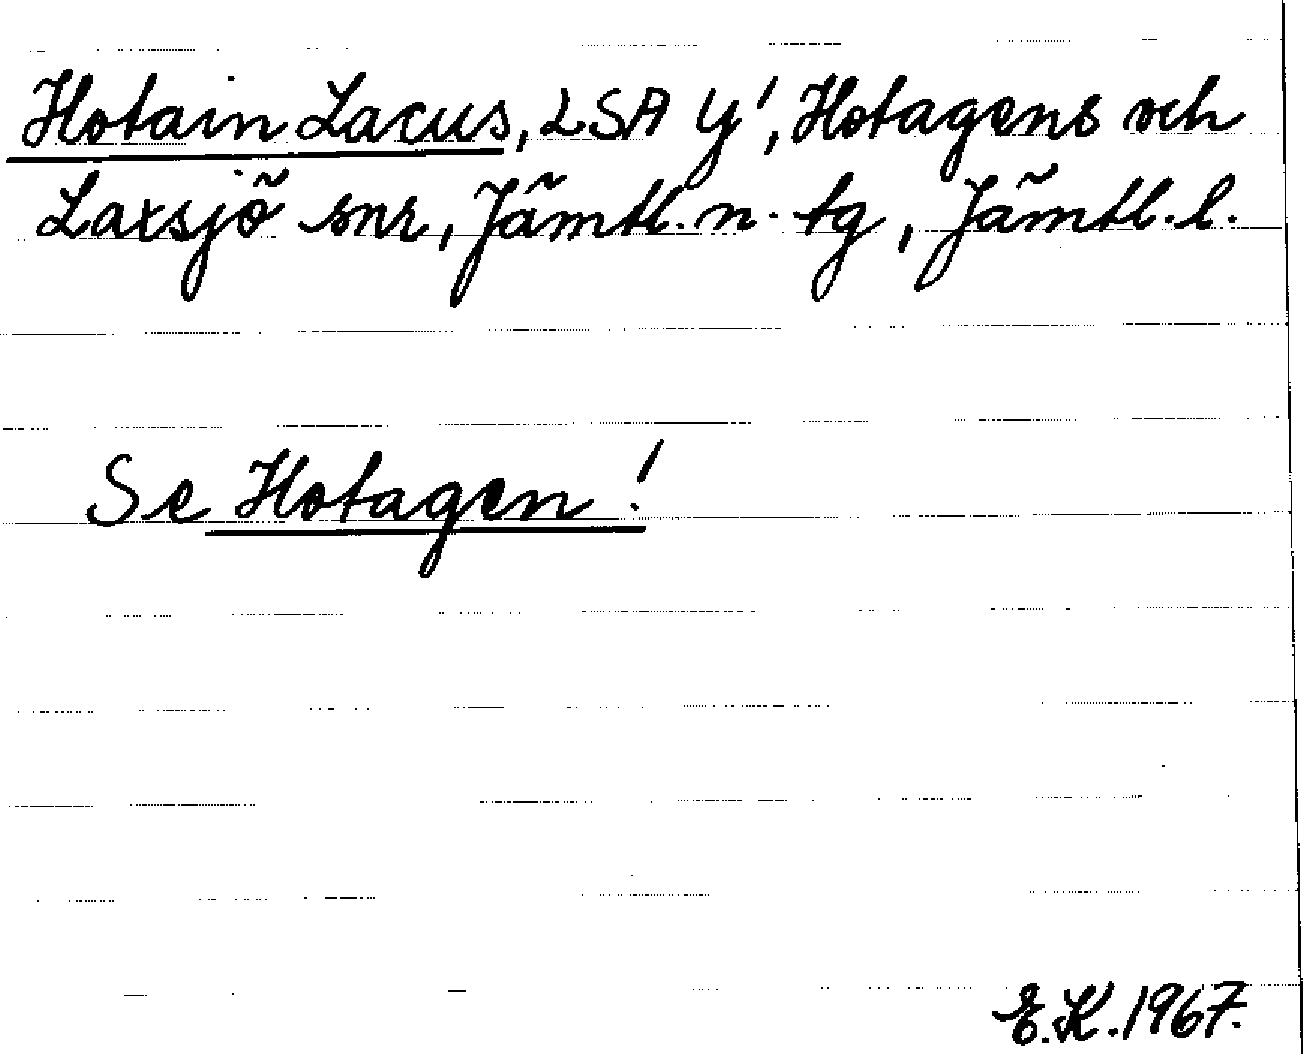 Hotain Lacus, LSA y', Hotagens och
Laxsjö snr, Jämtl. n. tg, Jämtl. l.
Se Hotagen!
E.K. 1967.